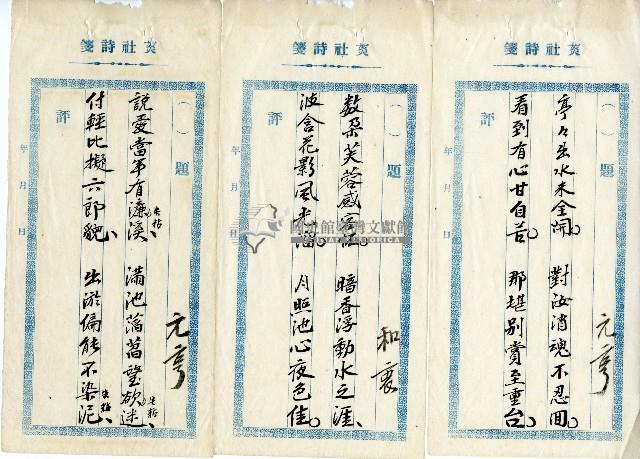 菼社詩箋
（　）題
亭々出水未全開　對汝消魂不忍回
看到有心甘自苦　那堪別賞至重台
元亨
評
年　月　日
菼社詩箋
（　）題
数朵芙蓉盛　暗香浮動水之涯
波含花影風　月照池心夜色佳
和衷
評
年　月　日
國史館臺灣文獻館
TAIWAN HISTORICA
菼社詩箋
（　）題
說愛當年有濂溪　失粘　滿池菡萏望欲迷　失粘
付輕比擬六郎貌　出淤偏能不染泥　失粘
元亨
評
年　月　日